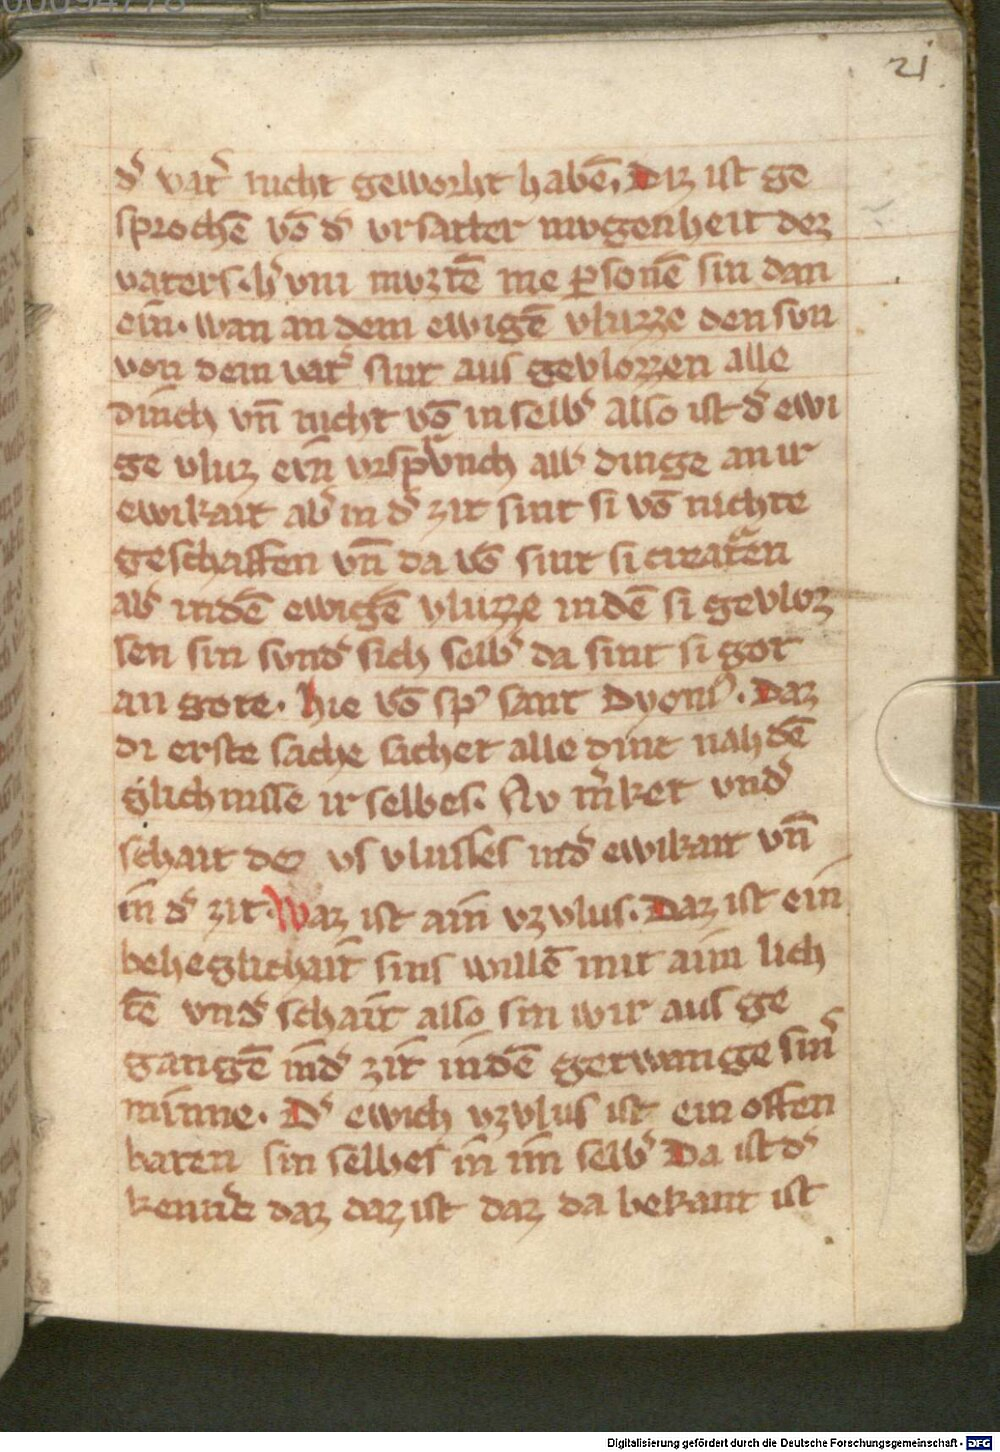 21
d͛ vat͛ nicht geworht habē, Diz ist ge
sprochē vō d͛ vrsatter mvgenheit dez
vaters. h͛ vm mvztē me ꝑsonē sin dan
ein. wan an dem ewigē vluzze den svn
von dem vat͛ sint aus gevlozzen alle
dinch vn̄ nicht vō in selb͛ also ist d͛ ewi
ge vluz ein vrspͮnch all͛ dinge an ir
ewikait ab͛ in d͛ zit sint si vō nichte
geschaffen vn̄ da vō sint si creat͛en
ab͛ in dē ewigē vluzze in dē si gevloz
sen sin svnd͛ sich selb͛ da sint si got
an gote. hie vō sp͛ sant Dyoni͛. Daz
di erste sache sachet alle dinc nah dē
glichnisse ir selbes. Nv m͛ket vnd͛
schait dez vs vlusses in d͛ ewikait vn̄
in d͛ zit. Waz ist ain vzvlus. Daz ist ein
beheglichait sins willē mit aim lich
tē vnd͛schait also sin wir aus ge
gangē in d͛ zit in dē getwange sin͛
minne. D͛ ewich vzvlus ist ein offen
baren sin selbes in im selb͛ Da ist d͛
kennd͛ daz daz ist daz da bekant ist
Digitalisierung gefördert durch die Deutsche Forschungsgemeinschaft - DFG